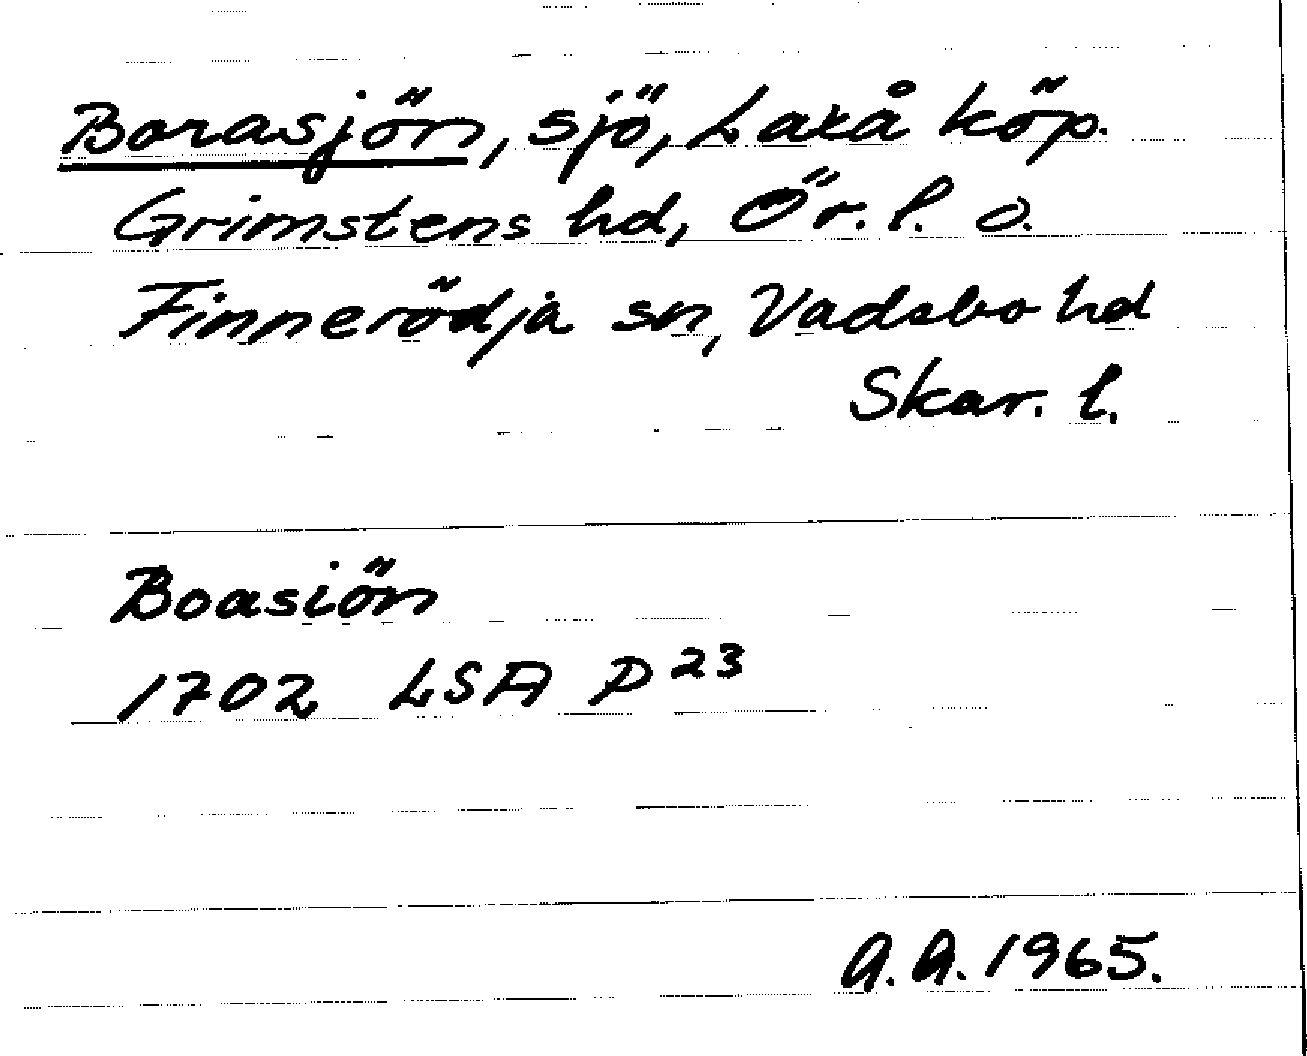 Borasjön, sjö, Laxå köp.
Grimstens hd, Ör. l. o.
Finnerödja sn, Vadsbo hd
Skar. l.
Boasiön
1702 LSA P 23
A.A. 1965.